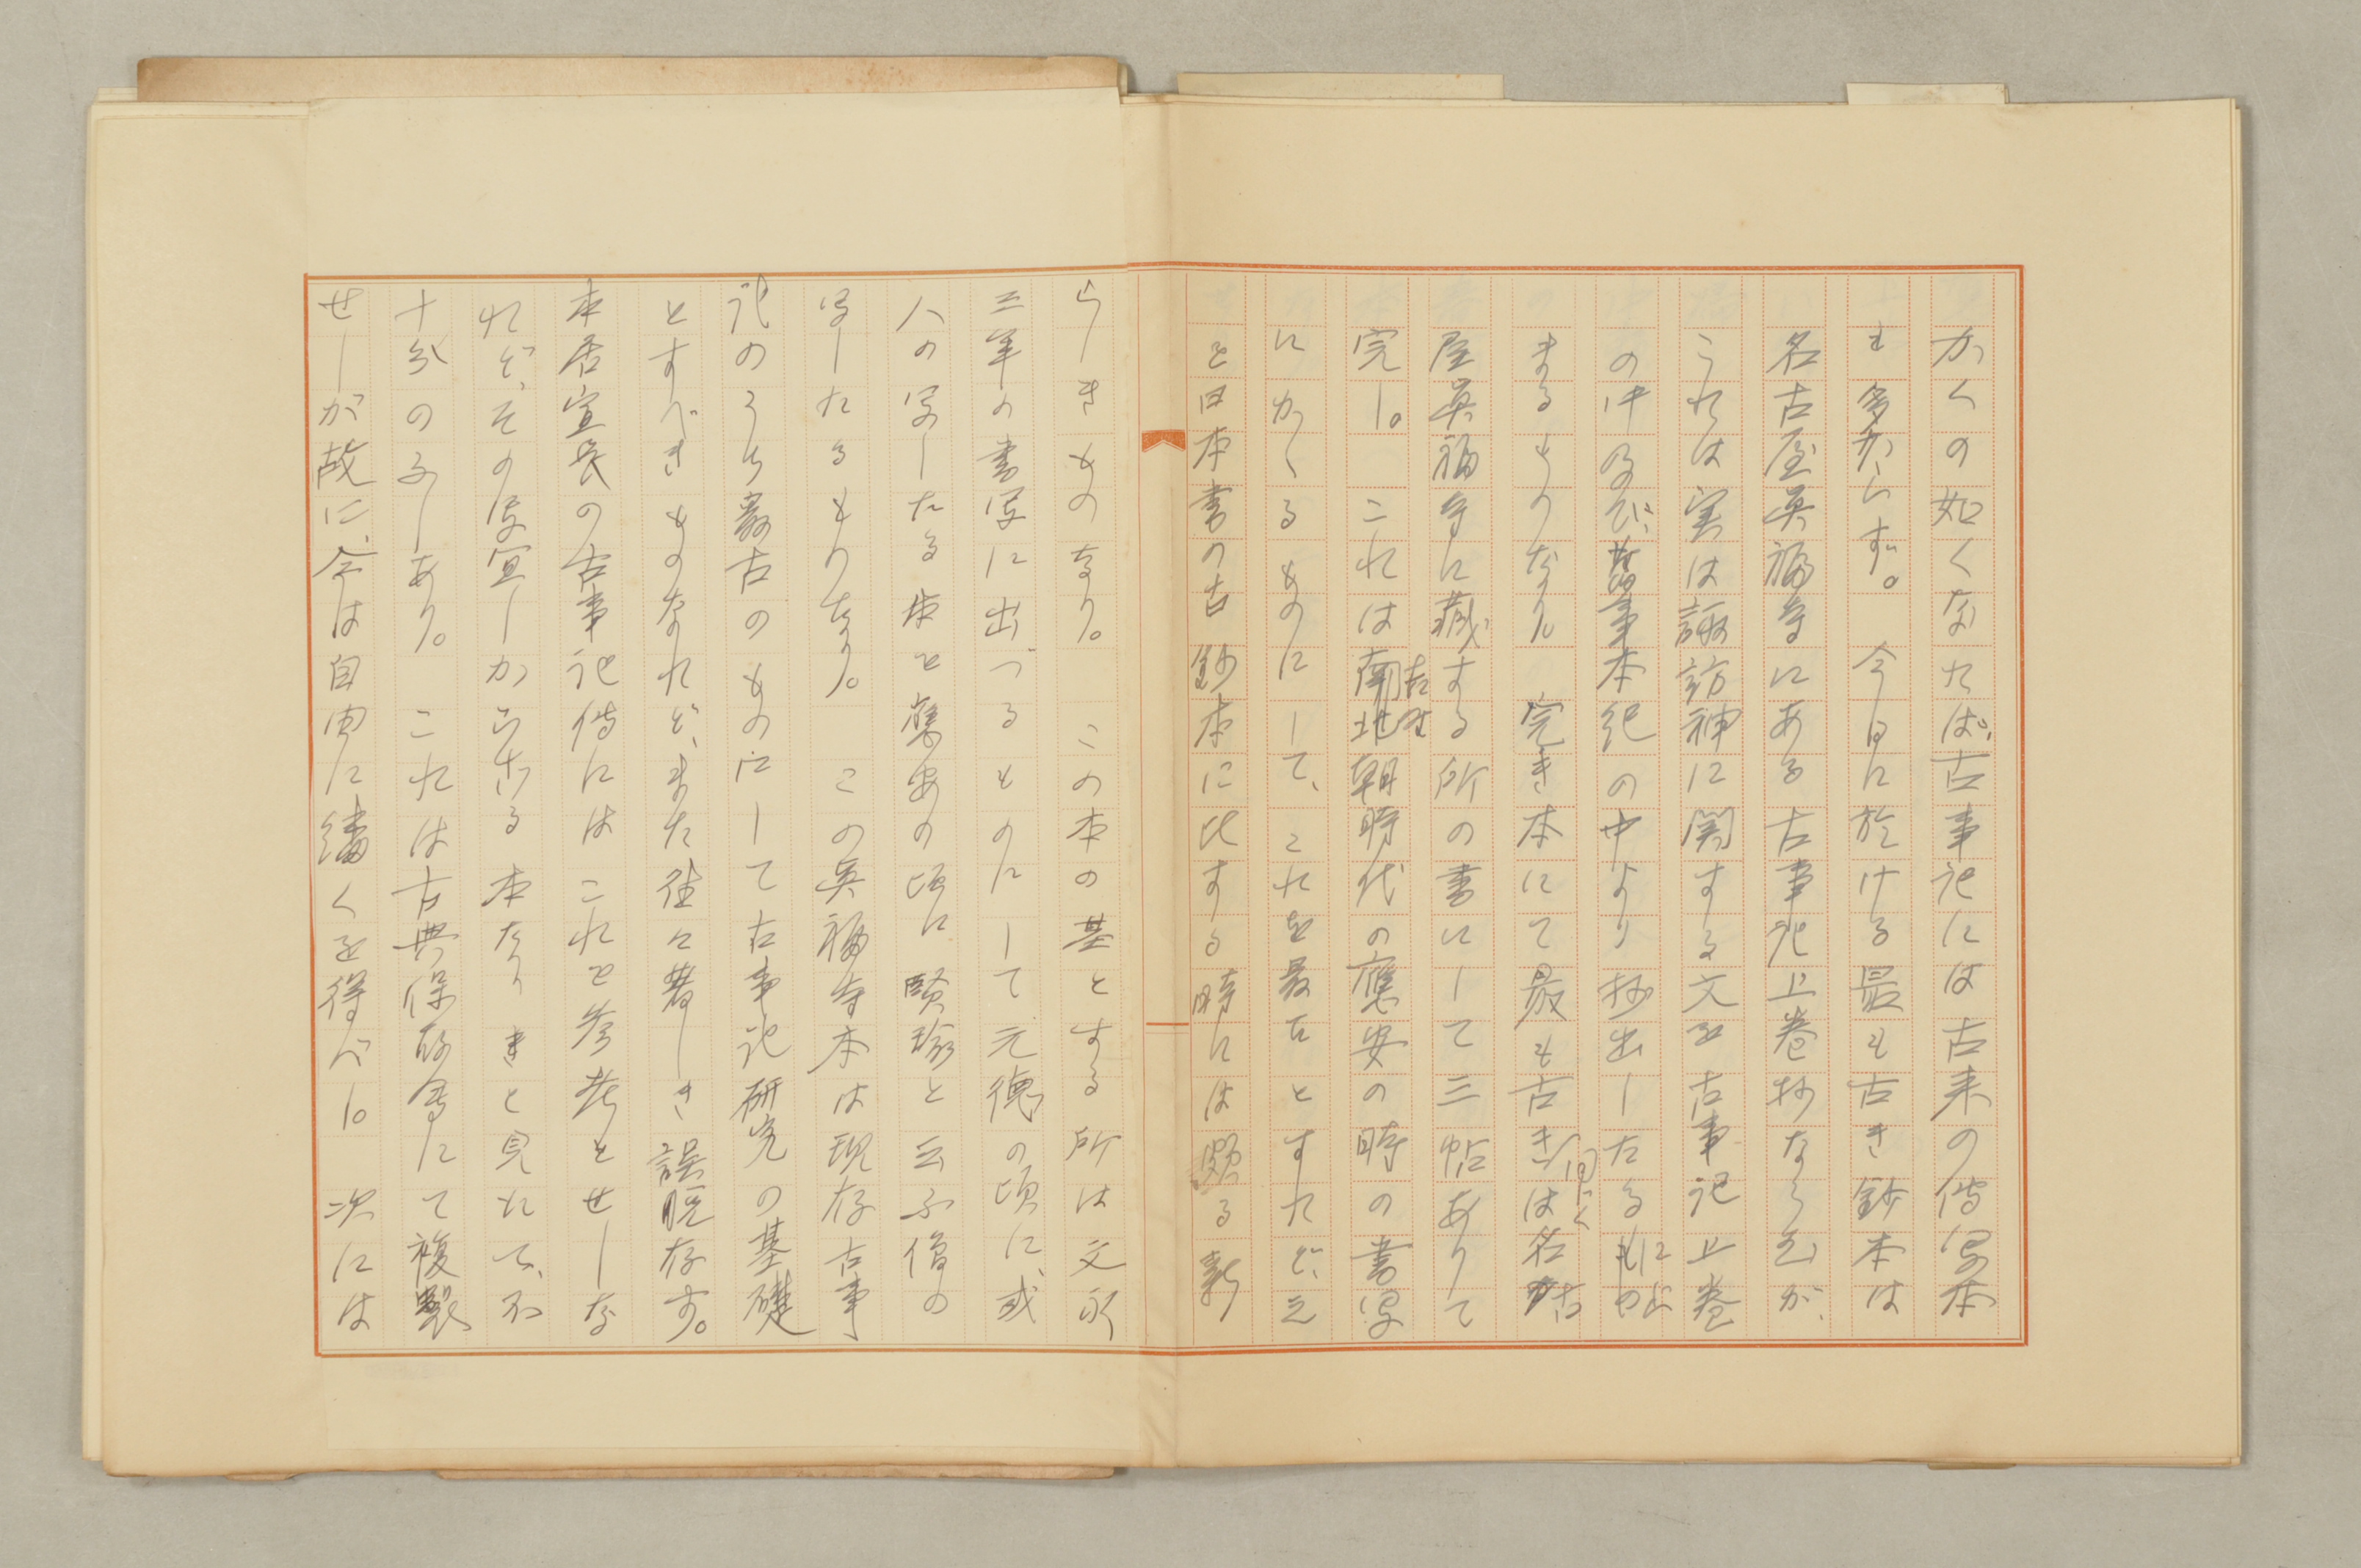 かくの如くなれば、古事記には古来の伝写本
も多からず。今日に於ける最も古き鈔本は
名古屋真福寺にある古事記上巻抄ならむが、
これは実は諏訪神に関する文を古事記上巻
の中及び、旧事本紀の中より抄出したるに止
まるものなり。完き本にて最も古きは同じく名古
屋真福寺に蔵する所の書にして三帖ありて
完し。これは吉野朝時代の応安の時の書写
にかゝるものにして、これを最古とすれど、之
を日本書の古鈔本に比する時には頗る新
らしきものなり。この本の基とする所は文永
三年の書写に出づるものにして元徳の頃に、或
人の写したる本を応安の頃に賢瑜と云ふ僧の
写したるものなり。この真福寺本は現存古事
記のうち最古のものにして古事記研究の基礎
とすべきものなれど、また往々著しき誤脱存す。
本居宣長の古事記伝にはこれを参考とせしな
れど、その写宜しからざる本なりきと見えて、不
十分の事しあり。これは古典保存会にて複製
せしが故に、今は自由に繙くを得べし。次には